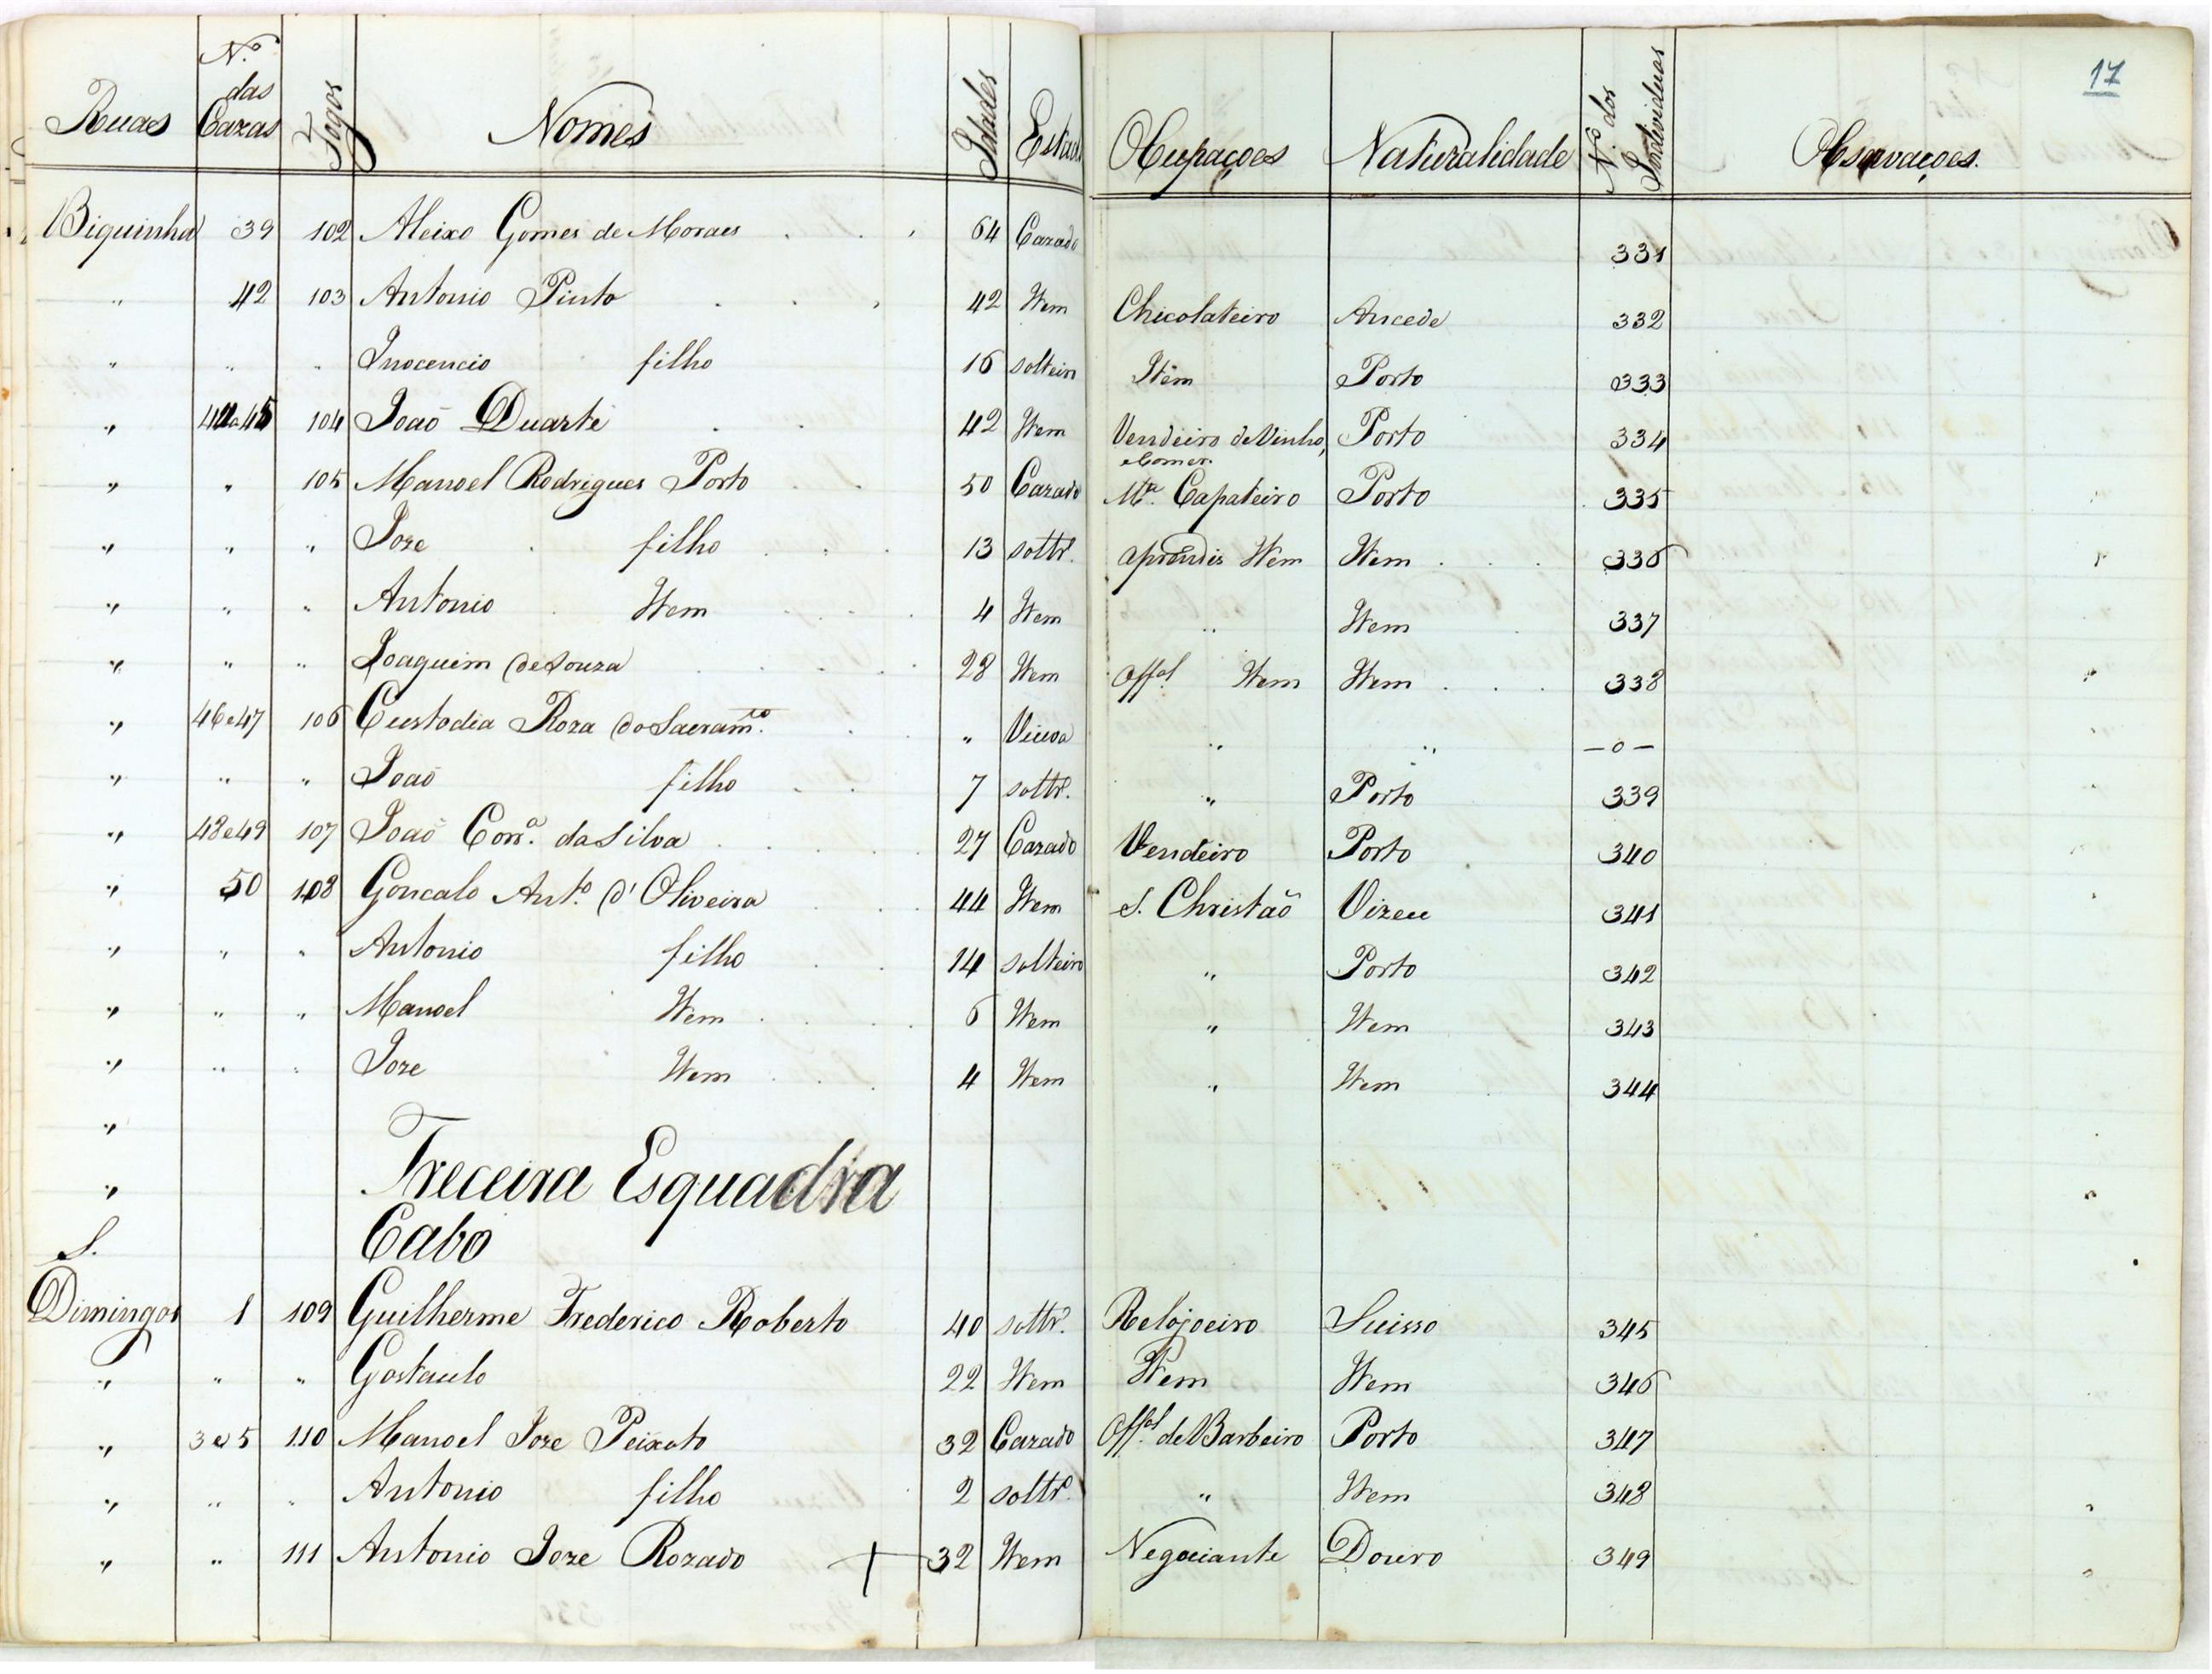 17
Ruas Nº das Cazas Fogos Nomes Idades Estad Ocupaçoes Naturalidade Nº dos Individuos Observaçoes.
Biquinha 39 102 Aleixo Gomes de Moraes 64 Cazado 331
" 42 103 Antonio Pinto 42 Item Chicolateiro Ancede 332
" " " Inocencio filho 16 solteiro Item Porto 333
" 104 João Duarte 42 Item Vendeiro de Vinho, e Comer. Porto 334
" " 105 Manoel Rodrigues Porto 50 Cazado Mº. Capateiro Porto 335
" " " Joze filho 13 soltrº. aprendis Item Item 336
" " " Antonio Item 4 Item " Item 337
" " " Joaquim de Souza 28 Item Offal. Item Item 338
" 46 e 47 106 Custodia Roza do Sacramto. " Viuva " " —o—
" " " João filho 7 soltrº. " Porto 339
" 48 e 49 107 João Corra. da Silva 27 Cazado Vendeiro Porto 340
" 50 108 Goncalo Anto. d' Oliveira 44 Item S. Christão Vizeu 341
" " " Antonio filho 14 solteiro " Porto 342
" " " Manoel Item 6 Item " Item 343
" " " Joze Item 4 Item " Item 344
"
" Treceira Esquadra
S. Cabo
Dimingos 1 109 Guilherme Frederico Roberto 40 soltrº. Relojoeiro Suisso 345
" " " Gostaulo 22 Item Item Item 346
" 3 e 5 110 Manoel Joze Peixoto 32 Cazado Offal. de Barbeiro Porto 347
" " " Antonio filho 2 soltrº. " Item 348
" " 111 Antonio Joze Rozado 32 Item Negociante Douro 349